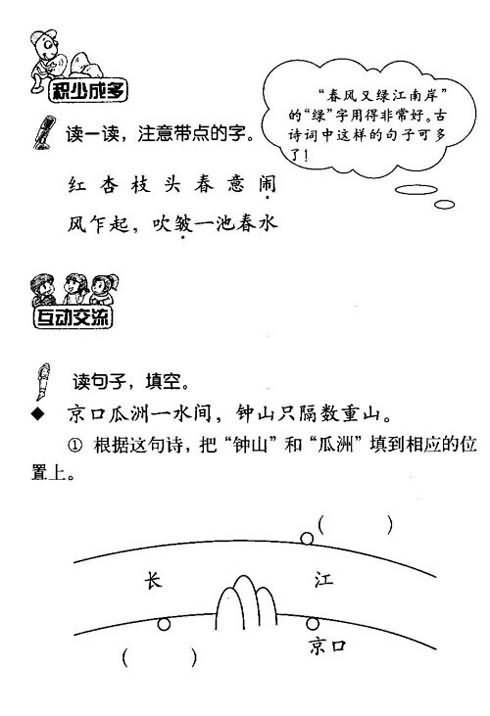 积少成多
“春风又绿江南岸”
的“绿”字用得非常好。古
诗词中这样的句子可多
了！
读一读，注意带点的字。
红杏枝头春意闹
风乍起，吹皱一池春水
互动交流
读句子，填空。
◆ 京口瓜洲一水间，钟山只隔数重山。
① 根据这句诗，把“钟山”和“瓜洲”填到相应的位
置上。
（ ）
长 江
京口
（ ）